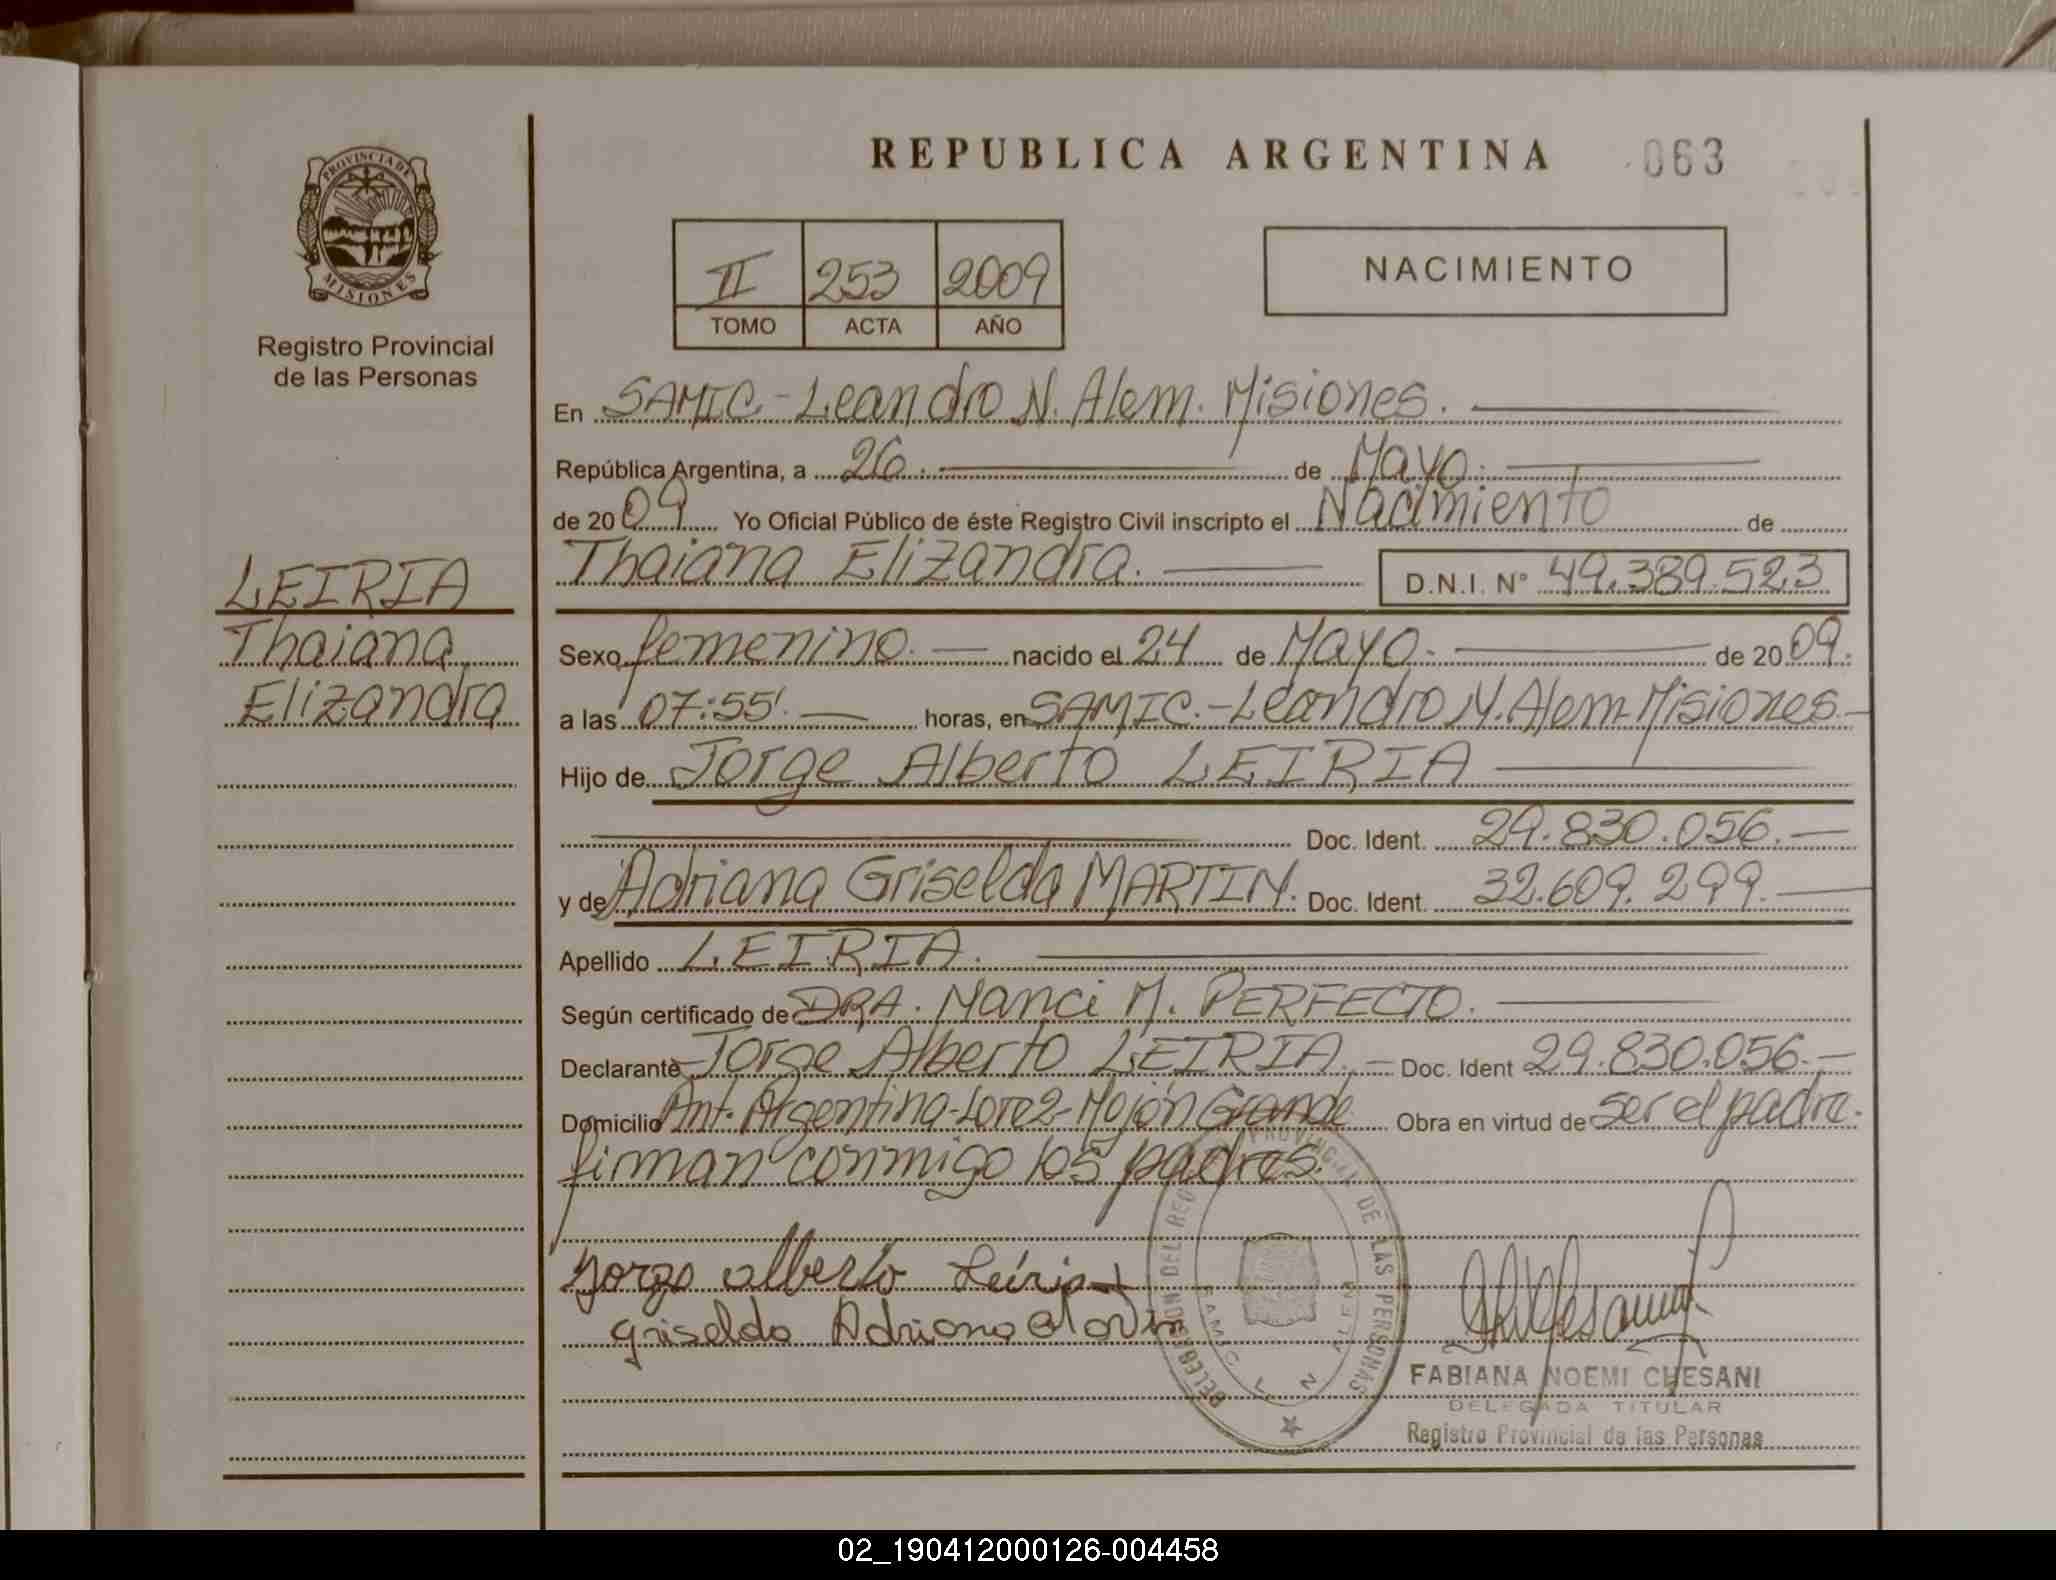 REPUBLICA ARGENTINA 063
PROVINCIA DE
MISIONES
Registro Provincial
de las Personas
II 253 2009
TOMO ACTA AÑO
NACIMIENTO
En SAMIC - Leandro N. Alem. Misiones.
República Argentina, a 26. de Mayo.
de 2009 Yo Oficial Público de éste Registro Civil inscripto el Nacimiento de
Thaiana Elizandra. D.N.I. N° 49.389.523
LEIRIA
Thaiana
Elizandra
Sexo femenino. nacido el 24 de Mayo. de 2009.
a las 07:55'. horas, en SAMIC.-Leandro N. Alem-Misiones.
Hijo de Jorge Alberto LEIRIA
Doc. Ident. 29.830.056.
y de Adriana Griselda MARTIN. Doc. Ident. 32.609.299.
Apellido LEIRIA.
Según certificado de DRA. Nanci M. PERFECTO.
Declarante Jorge Alberto LEIRIA. Doc. Ident 29.830.056.
Domicilio Ant. Argentina-Lote 2-Mojón Grande Obra en virtud de ser el padre.
firman conmigo los padres.
Jorge alberto Leiria
Griselda Adriana
DELEGACION DEL REG PROVINCIAL DE LAS PERSONAS
SAMIC L N ALEM
FABIANA NOEMI CHESANI
DELEGADA TITULAR
Registro Provincial de las Personas
02_190412000126-004458